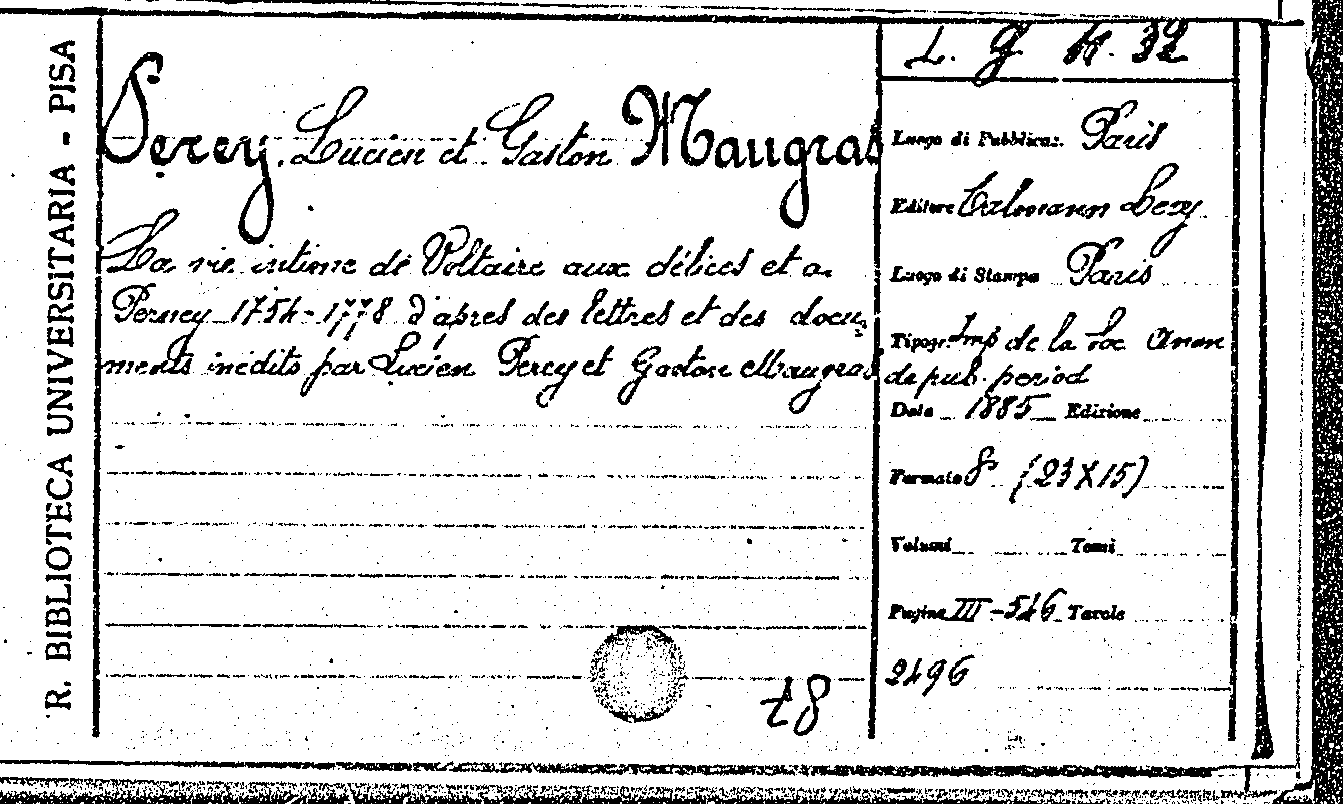 R. BIBLIOTECA UNIVERSITARIA - PISA
L. g. 11. 32
Perey. Lucien et Gaston Maugras
La vie intime de Voltaire aux délices et a
Ferney 1754-1778 d'apres des lettres et des docu,
ments inedits par Lucien Perey et Gaston Maugras
Luogo di Pubblicaz. Paris
Editore Calmann Levy
Luogo di Stampa Paris
Tipogr. Imp de la Soc Anon
de pub. period
Data 1885 Edizione
Formato 8° (23X15)
Volumi Tomi
Pagine III-546 Tavole
2496
t8